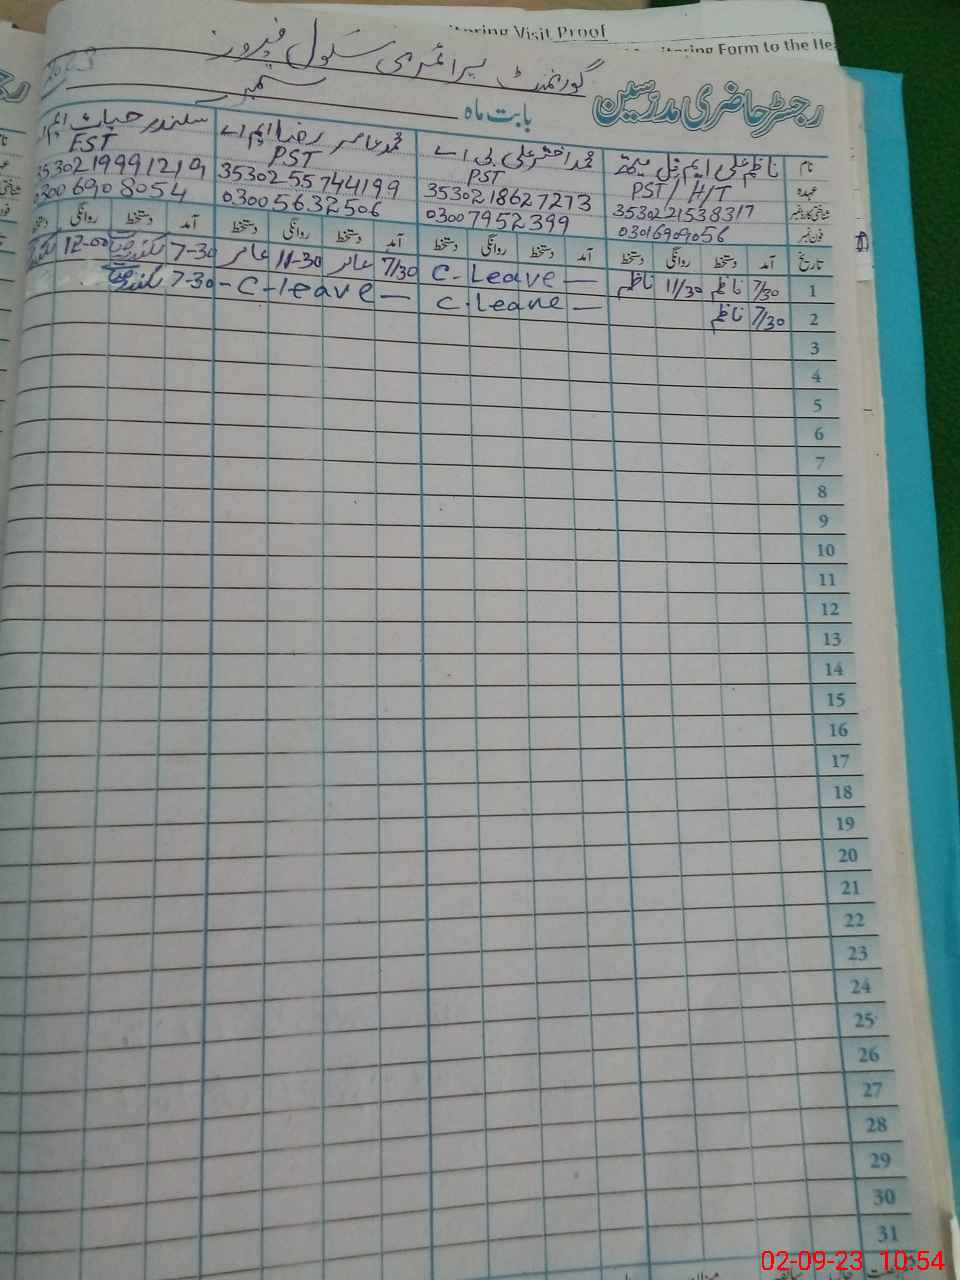 Monitoring Visit Proof
Monitoring Form to the Hea
گورنمنٹ پرائمری سکول فیروز
رجسٹر حاضری مدرسین
بابت ماہ ستمبر
نام ناظم علی ایم فل محمد اختر علی بی اے محمد عامر رضا ایم اے سکندر حیات ایم اے
عہدہ PST / H/T PST PST EST
شناختی کارڈ نمبر 3530221538317 3530218627273 3530255744199 3530219991219
فون نمبر 03016909056 03007952399 03005632506 03006908054
تاریخ آمد دستخط روانگی دستخط آمد دستخط روانگی دستخط آمد دستخط روانگی دستخط آمد دستخط روانگی دستخط
1 7/30 ناظم 11/30 ناظم C-Leave — 7/30 عامر 11-30 عامر 7-30 سکندر حیات 12-00
2 7/30 ناظم C.Leave — -C-leave — 7-30 سکندر حیات
3
4
5
6
7
8
9
10
11
12
13
14
15
16
17
18
19
20
21
22
23
24
25
26
27
28
29
30
31
02-09-23 10:54